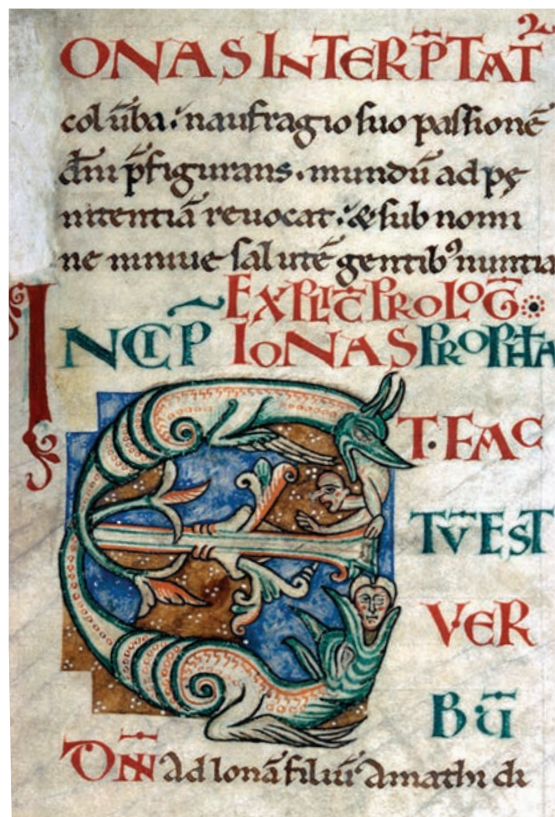 IONAS INTERP̄TAT᷑
colūba. naufragio suo passionē
dn̄i p̄figurans. mundū ad pę
nitentiā reuocat. & sub nomi
ne niniue salutē gentib᷒ nuntia
EXPLIC̄ PROLOG̅
INCIP̄ IONAS PROPHA
ET FAC
TV̄ EST
VER
BŪ
DN̄I Ad Ionā filiū Amathi di